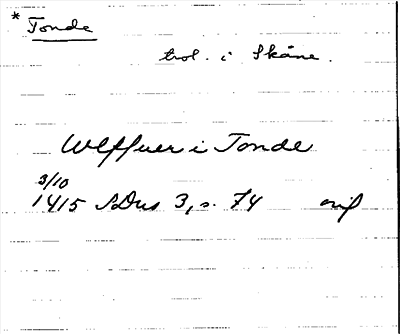 * Tonde
trol. i Skåne.
Wlffuer i Tonde
3/10
1415 SDns 3, s. 74 orig